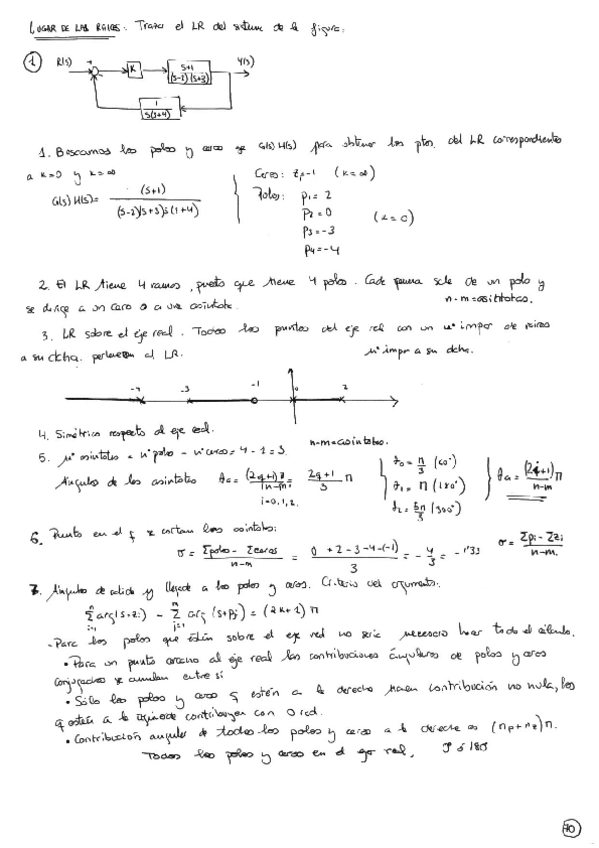 LUGAR DE LAS RAICES: Trazar el LR del sistema de la figura.
① R(s) + - K S+1 / (S-2)(S+3) Y(s)
1 / S(S+4)
1. Buscamos los polos y ceros de G(s)H(s) para obtener los ptos. del LR correspondientes
a K=0 y K=∞
G(s)H(s)= (S+1) / (S-2)(S+3)S(S+4)
Ceros: z1=-1 (K=∞)
Polos: P1 = 2
P2 = 0 (K=0)
P3 = -3
P4 = -4
2. El LR tiene 4 ramas, puesto que tiene 4 polos. Cada rama sale de un polo y
se dirige a un cero o a una asíntota. n-m=asíntotas.
3. LR sobre el eje real. Todos los puntos del eje real con un nº impar de raíces
a su dcha. pertenecen al LR. nº impar a su dcha.
-4 -3 -1 0 2
4. Simétrico respecto al eje real.
n-m=asíntotas.
5. nº asíntotas = nº polos - nº ceros = 4 - 1 = 3.
Ángulos de las asíntotas θa = (2q+1)π / |n-m| = 2q+1 / 3 π
i=0,1,2.
θ0 = π/3 (60°)
θ1 = π (180°)
θ2 = 5π/3 (300°)
θa = (2q+1)π / n-m
6. Punto en el q se cortan las asíntotas:
σ = Σpolos - Σceros / n-m = 0+2-3-4-(-1) / 3 = -4/3 = -1'33 σ = Σpi - Σzi / n-m.
7. Ángulos de salida y llegada a los polos y ceros. Criterio del argumento.
Σ arg(s+zi) - Σ arg(s+pj) = (2k+1)π
- Para los polos que están sobre el eje real no sería necesario hacer todo el cálculo.
• Para un punto cercano al eje real las contribuciones angulares de polos y ceros
conjugados se anulan entre sí
• Sólo los polos y ceros q estén a la derecha tienen contribución no nula, los
q estén a la izquierda contribuyen con 0 rad.
• Contribución angular de todos los polos y ceros a la derecha es (np+nz)π.
Todos los polos y ceros en el eje real, 0° ó 180°
70